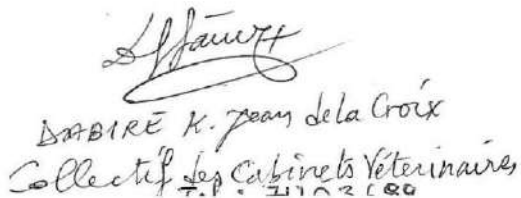 DABIRE K. Jean de la Croix
Collectif des Cabinets Véterinaires